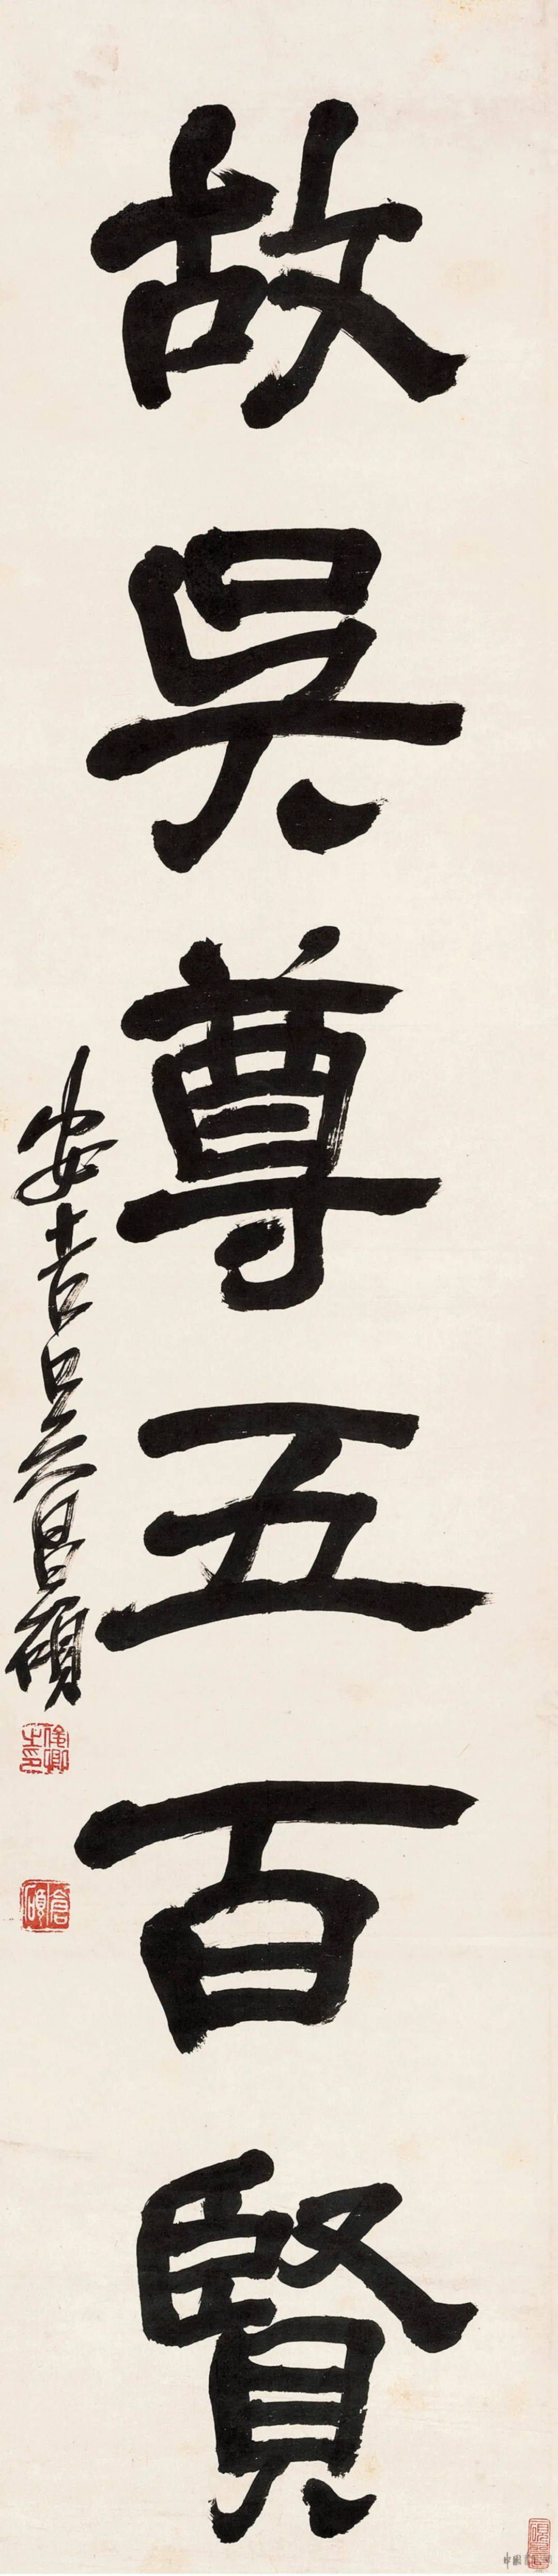 故吳尊五百賢
安吉吳昌碩
俊卿之印
倉碩